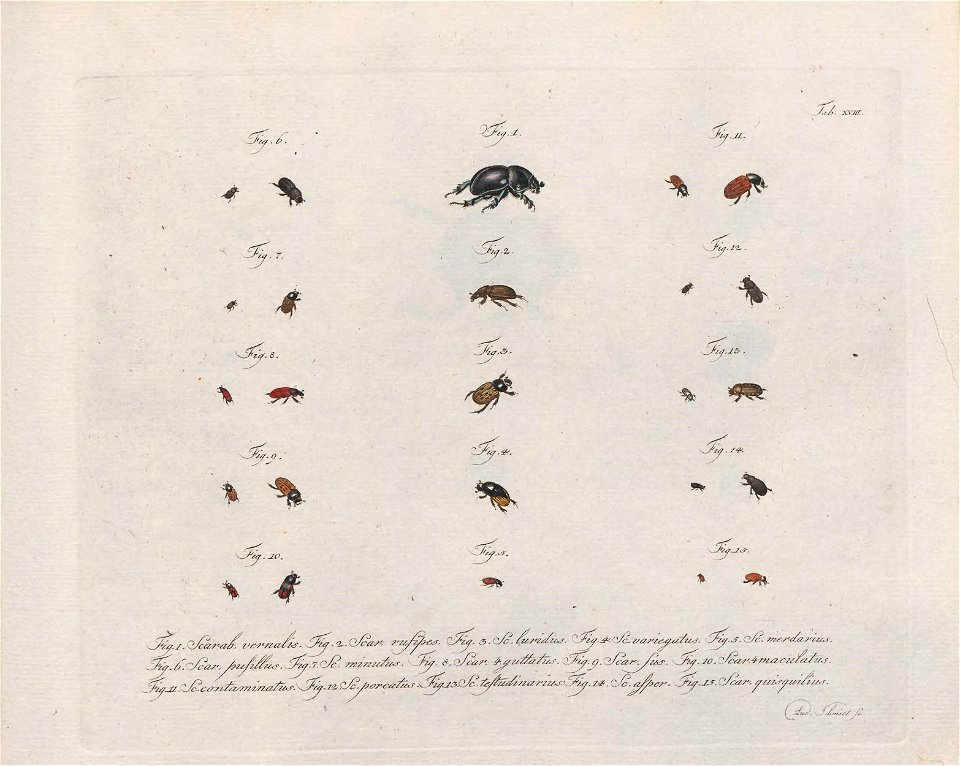 Tab. XVIII.
Fig. 6.
Fig. 1.
Fig. 11.
Fig. 7.
Fig. 2.
Fig. 12.
Fig. 8.
Fig. 3.
Fig. 13.
Fig. 9.
Fig. 4.
Fig. 14.
Fig. 10.
Fig. 5.
Fig. 15.
Fig. 1. Scarab. vernalis. Fig. 2. Scar. rufipes. Fig. 3. Sc. luridus. Fig. 4. Sc. variegatus. Fig. 5. Sc. merdarius.
Fig. 6. Scar. pusillus. Fig. 7. Sc. minutus. Fig. 8. Scar. 4 guttatus. Fig. 9. Scar. sus. Fig. 10. Scar. 4 maculatus.
Fig. 11. Sc. contaminatus. Fig. 12. Sc. porcatus. Fig. 13. Sc. testudinarius. Fig. 14. Sc. asper. Fig. 15. Scar. quisquilius.
Lud. Schmidt sc.